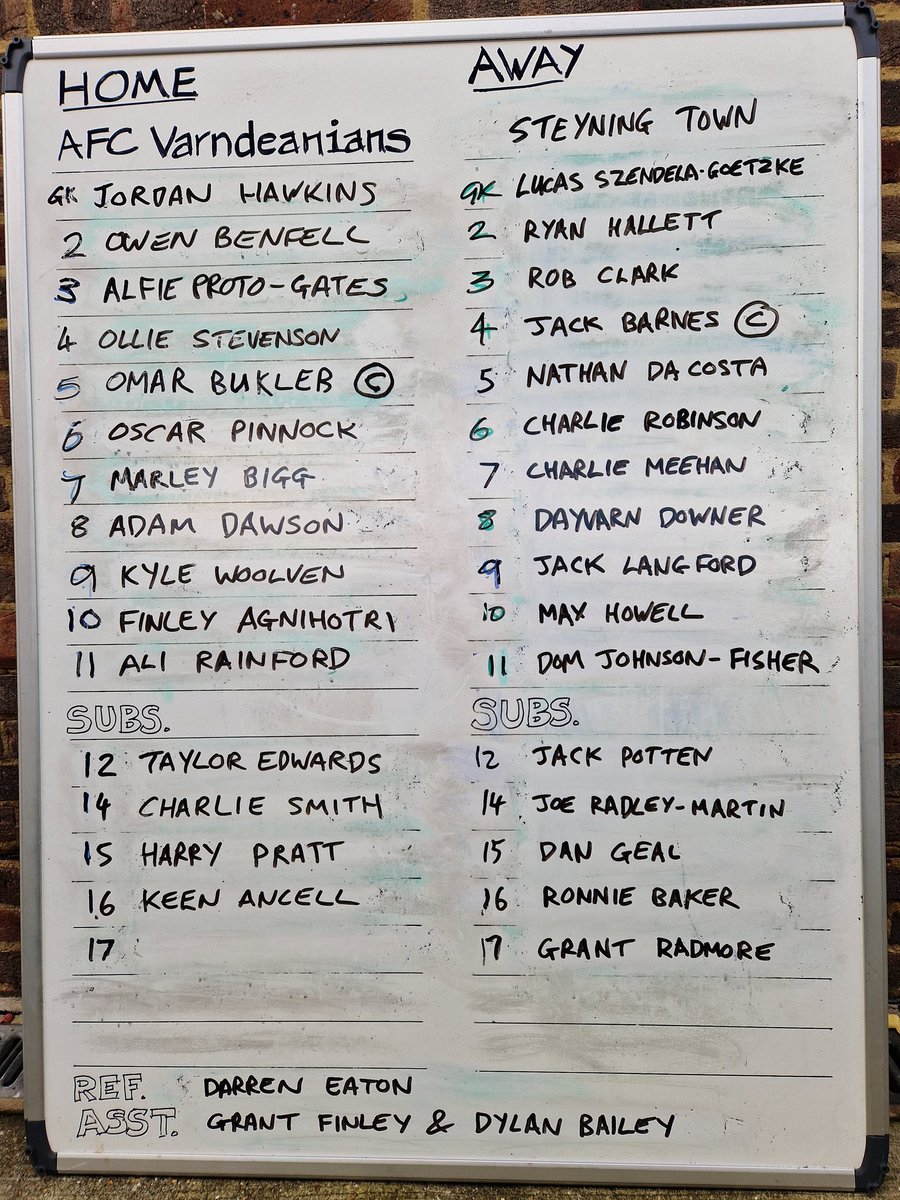 HOME
AFC Varndeanians
GK JORDAN HAWKINS
2 OWEN BENFELL
3 ALFIE PROTO-GATES
4 OLLIE STEVENSON
5 OMAR BUKLEB ©
6 OSCAR PINNOCK
7 MARLEY BIGG
8 ADAM DAWSON
9 KYLE WOOLVEN
10 FINLEY AGNIHOTRI
11 ALI RAINFORD
SUBS.
12 TAYLOR EDWARDS
14 CHARLIE SMITH
15 HARRY PRATT
16 KEEN ANCELL
17
AWAY
STEYNING TOWN
GK LUCAS SZENDELA-GOETZKE
2 RYAN HALLETT
3 ROB CLARK
4 JACK BARNES ©
5 NATHAN DA COSTA
6 CHARLIE ROBINSON
7 CHARLIE MEEHAN
8 DAYVARN DOWNER
9 JACK LANGFORD
10 MAX HOWELL
11 DOM JOHNSON-FISHER
SUBS.
12 JACK POTTEN
14 JOE RADLEY-MARTIN
15 DAN GEAL
16 RONNIE BAKER
17 GRANT RADMORE
REF. DARREN EATON
ASST. GRANT FINLEY & DYLAN BAILEY